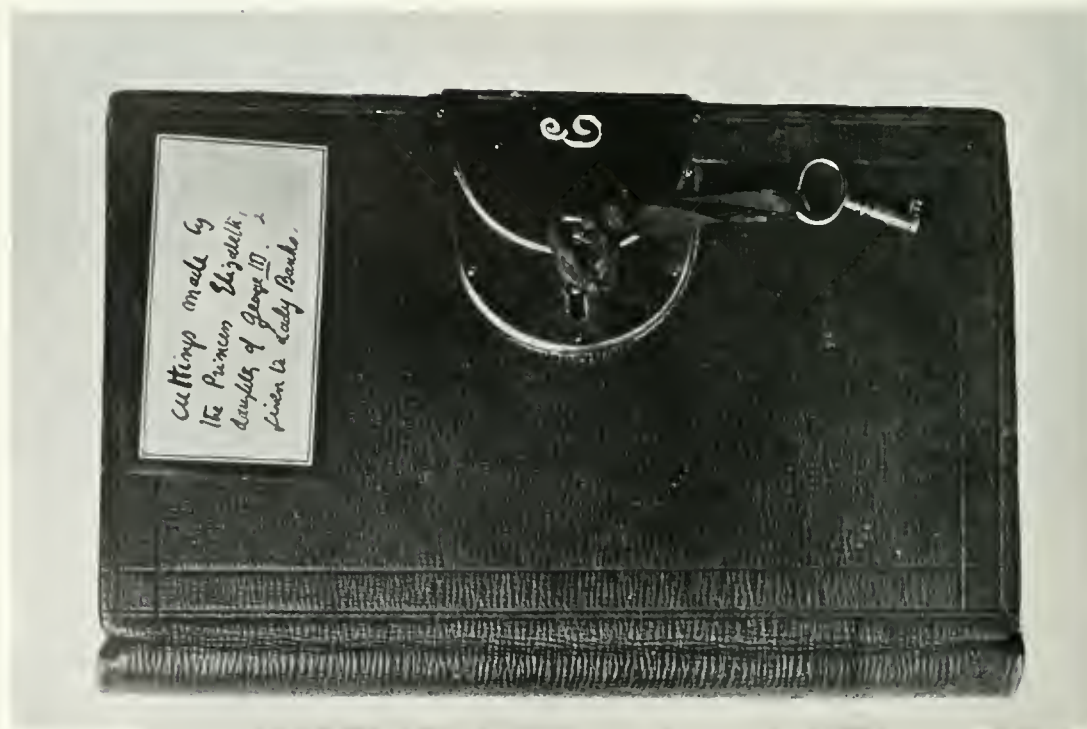 Cuttings made by
the Princess Elizabeth,
daughter of George III. &
given to Lady Banks.
E